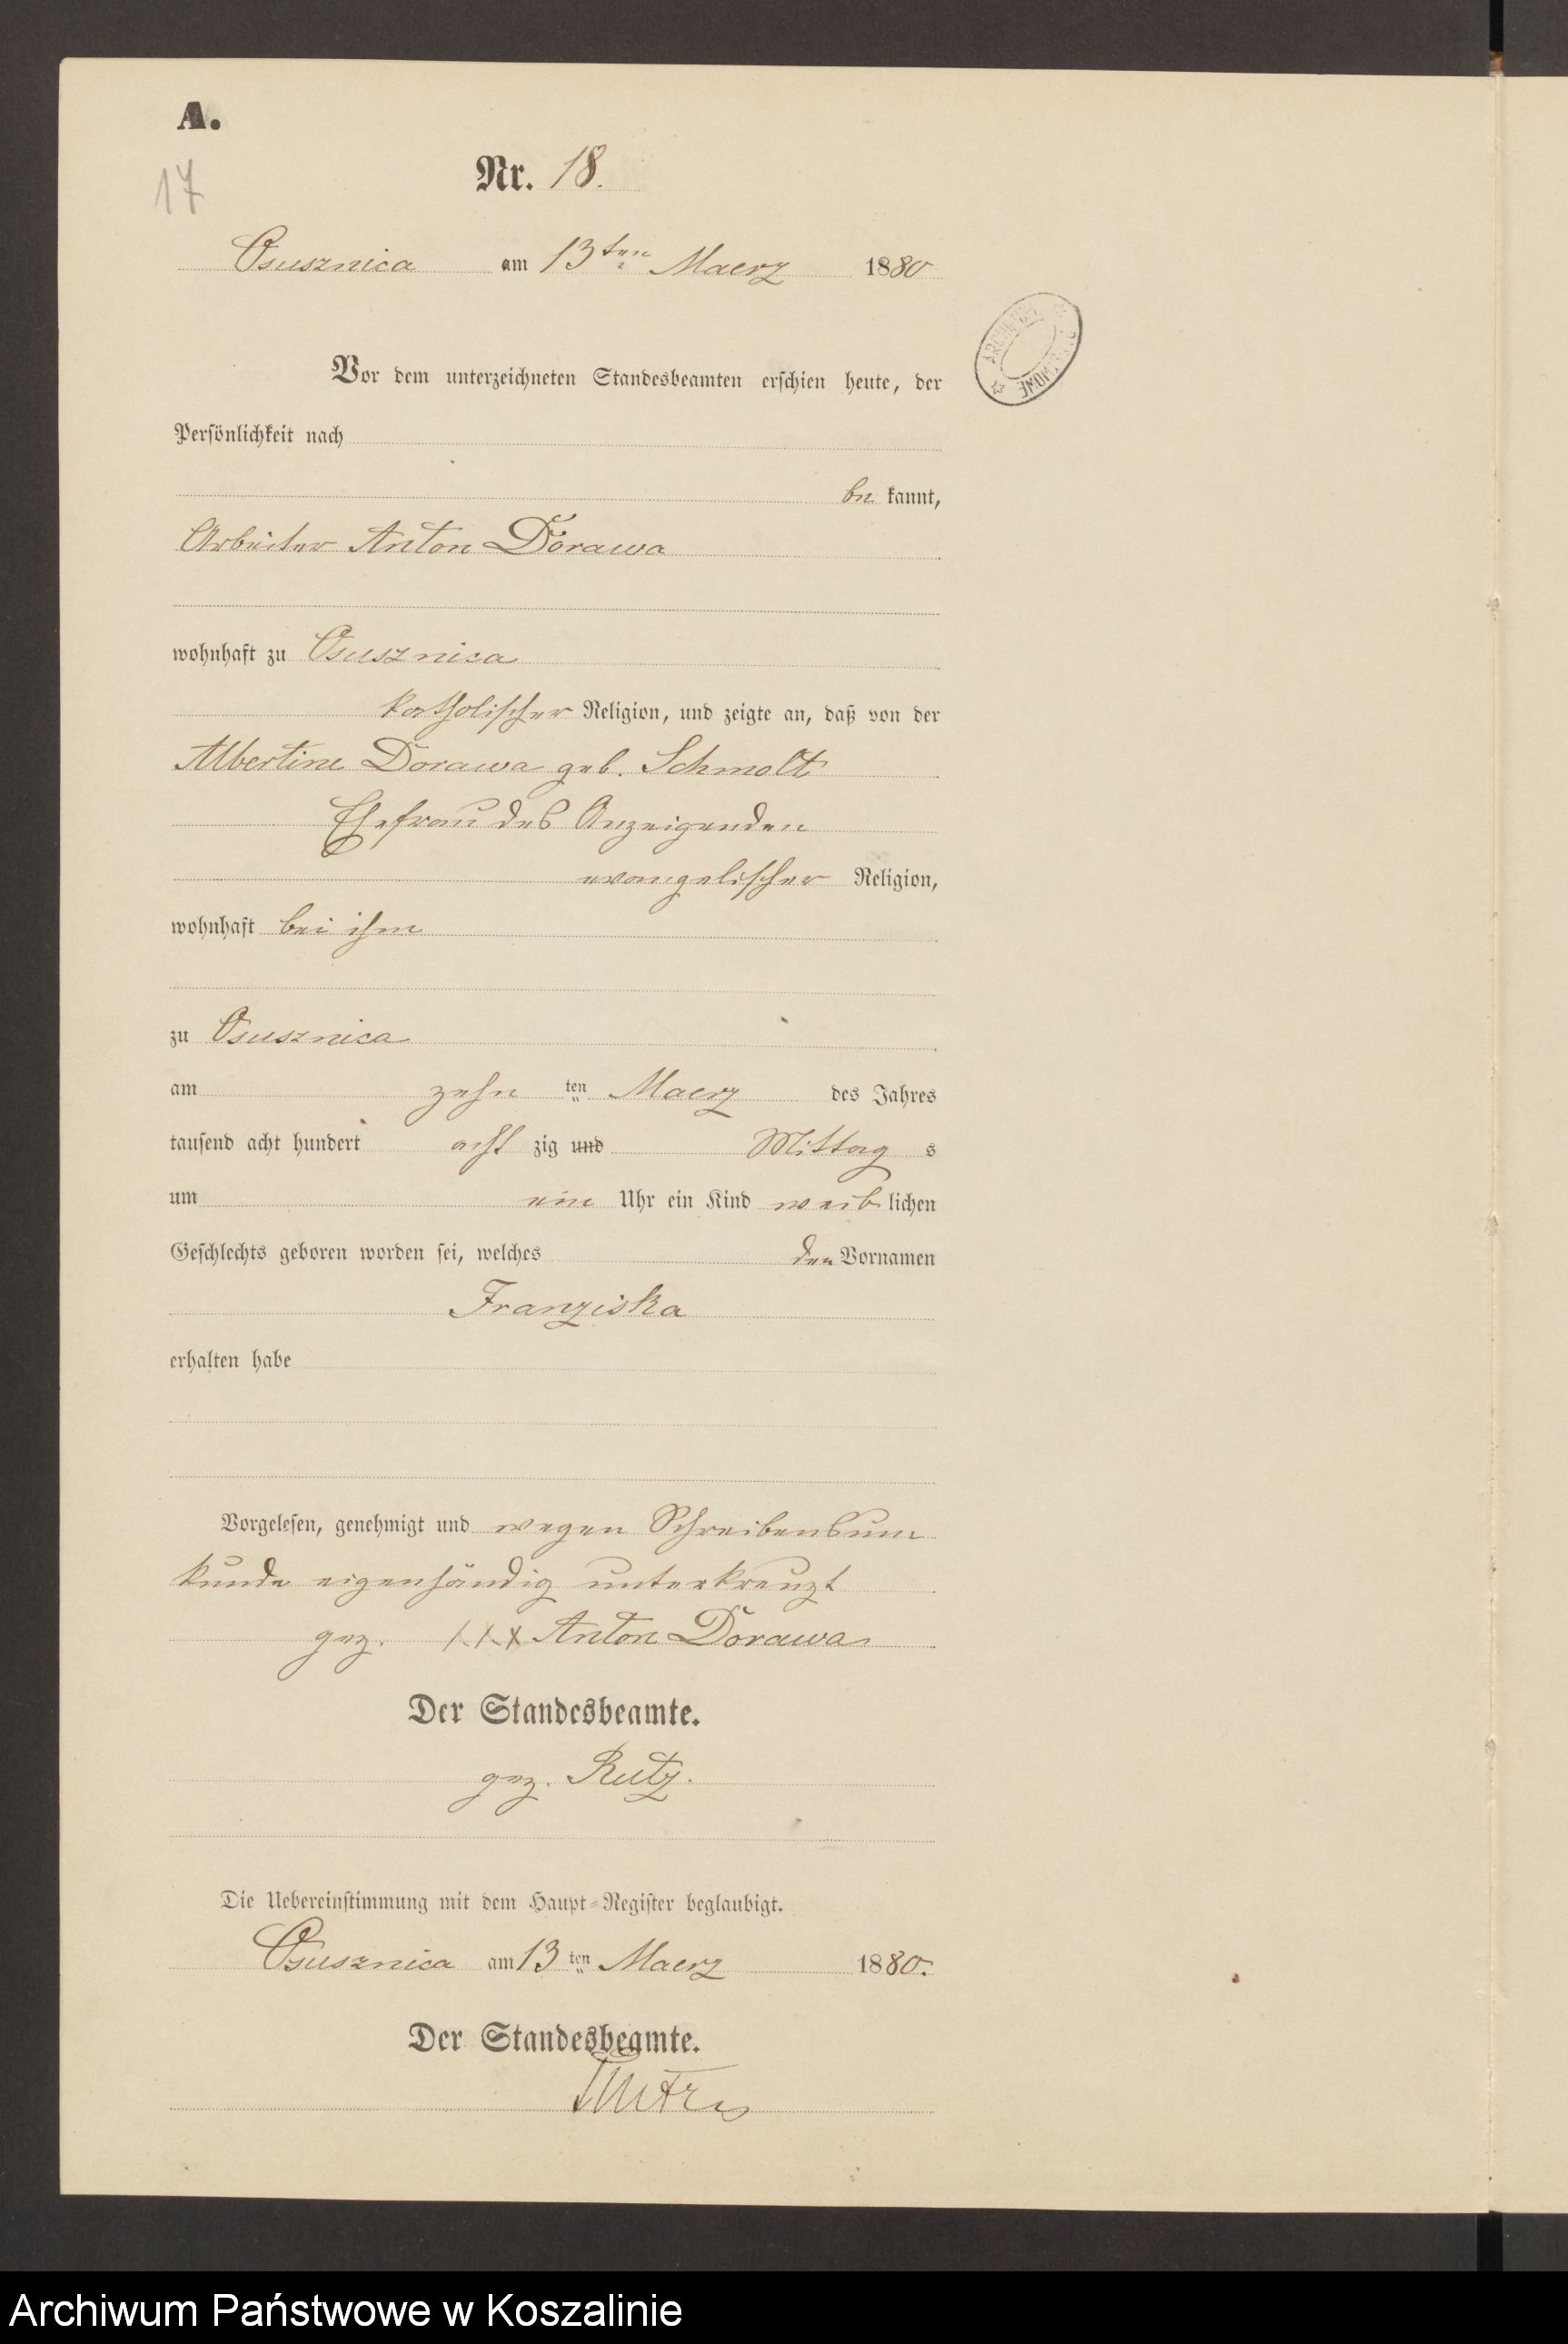 A.
17
Nr. 18.
Osusznica am 13ten Maerz 1880
Vor dem unterzeichneten Standesbeamten erschien heute, der
Persönlichkeit nach
be kannt,
Arbeiter Anton Dorawa
wohnhaft zu Osusznica
katholischer Religion, und zeigte an, daß von der
Albertine Dorawa geb. Schmolt
Ehefrau des Anzeigenden
evangelischer Religion,
wohnhaft bei ihm
zu Osusznica
am zehn ten Maerz des Jahres
tausend acht hundert acht zig und Mittag s
um ein Uhr ein Kind weib lichen
Geschlechts geboren worden sei, welches den Vornamen
Franziska
erhalten habe
Vorgelesen, genehmigt und wegen Schreibensun
kunde eigenhändig unterkreuzt
gez. XXX Anton Dorawa
Der Standesbeamte.
gez. Rutz.
Die Uebereinstimmung mit dem Haupt-Register beglaubigt.
Osusznica am 13 ten Maerz 1880.
Der Standesbeamte.
Archiwum Państwowe w Koszalinie